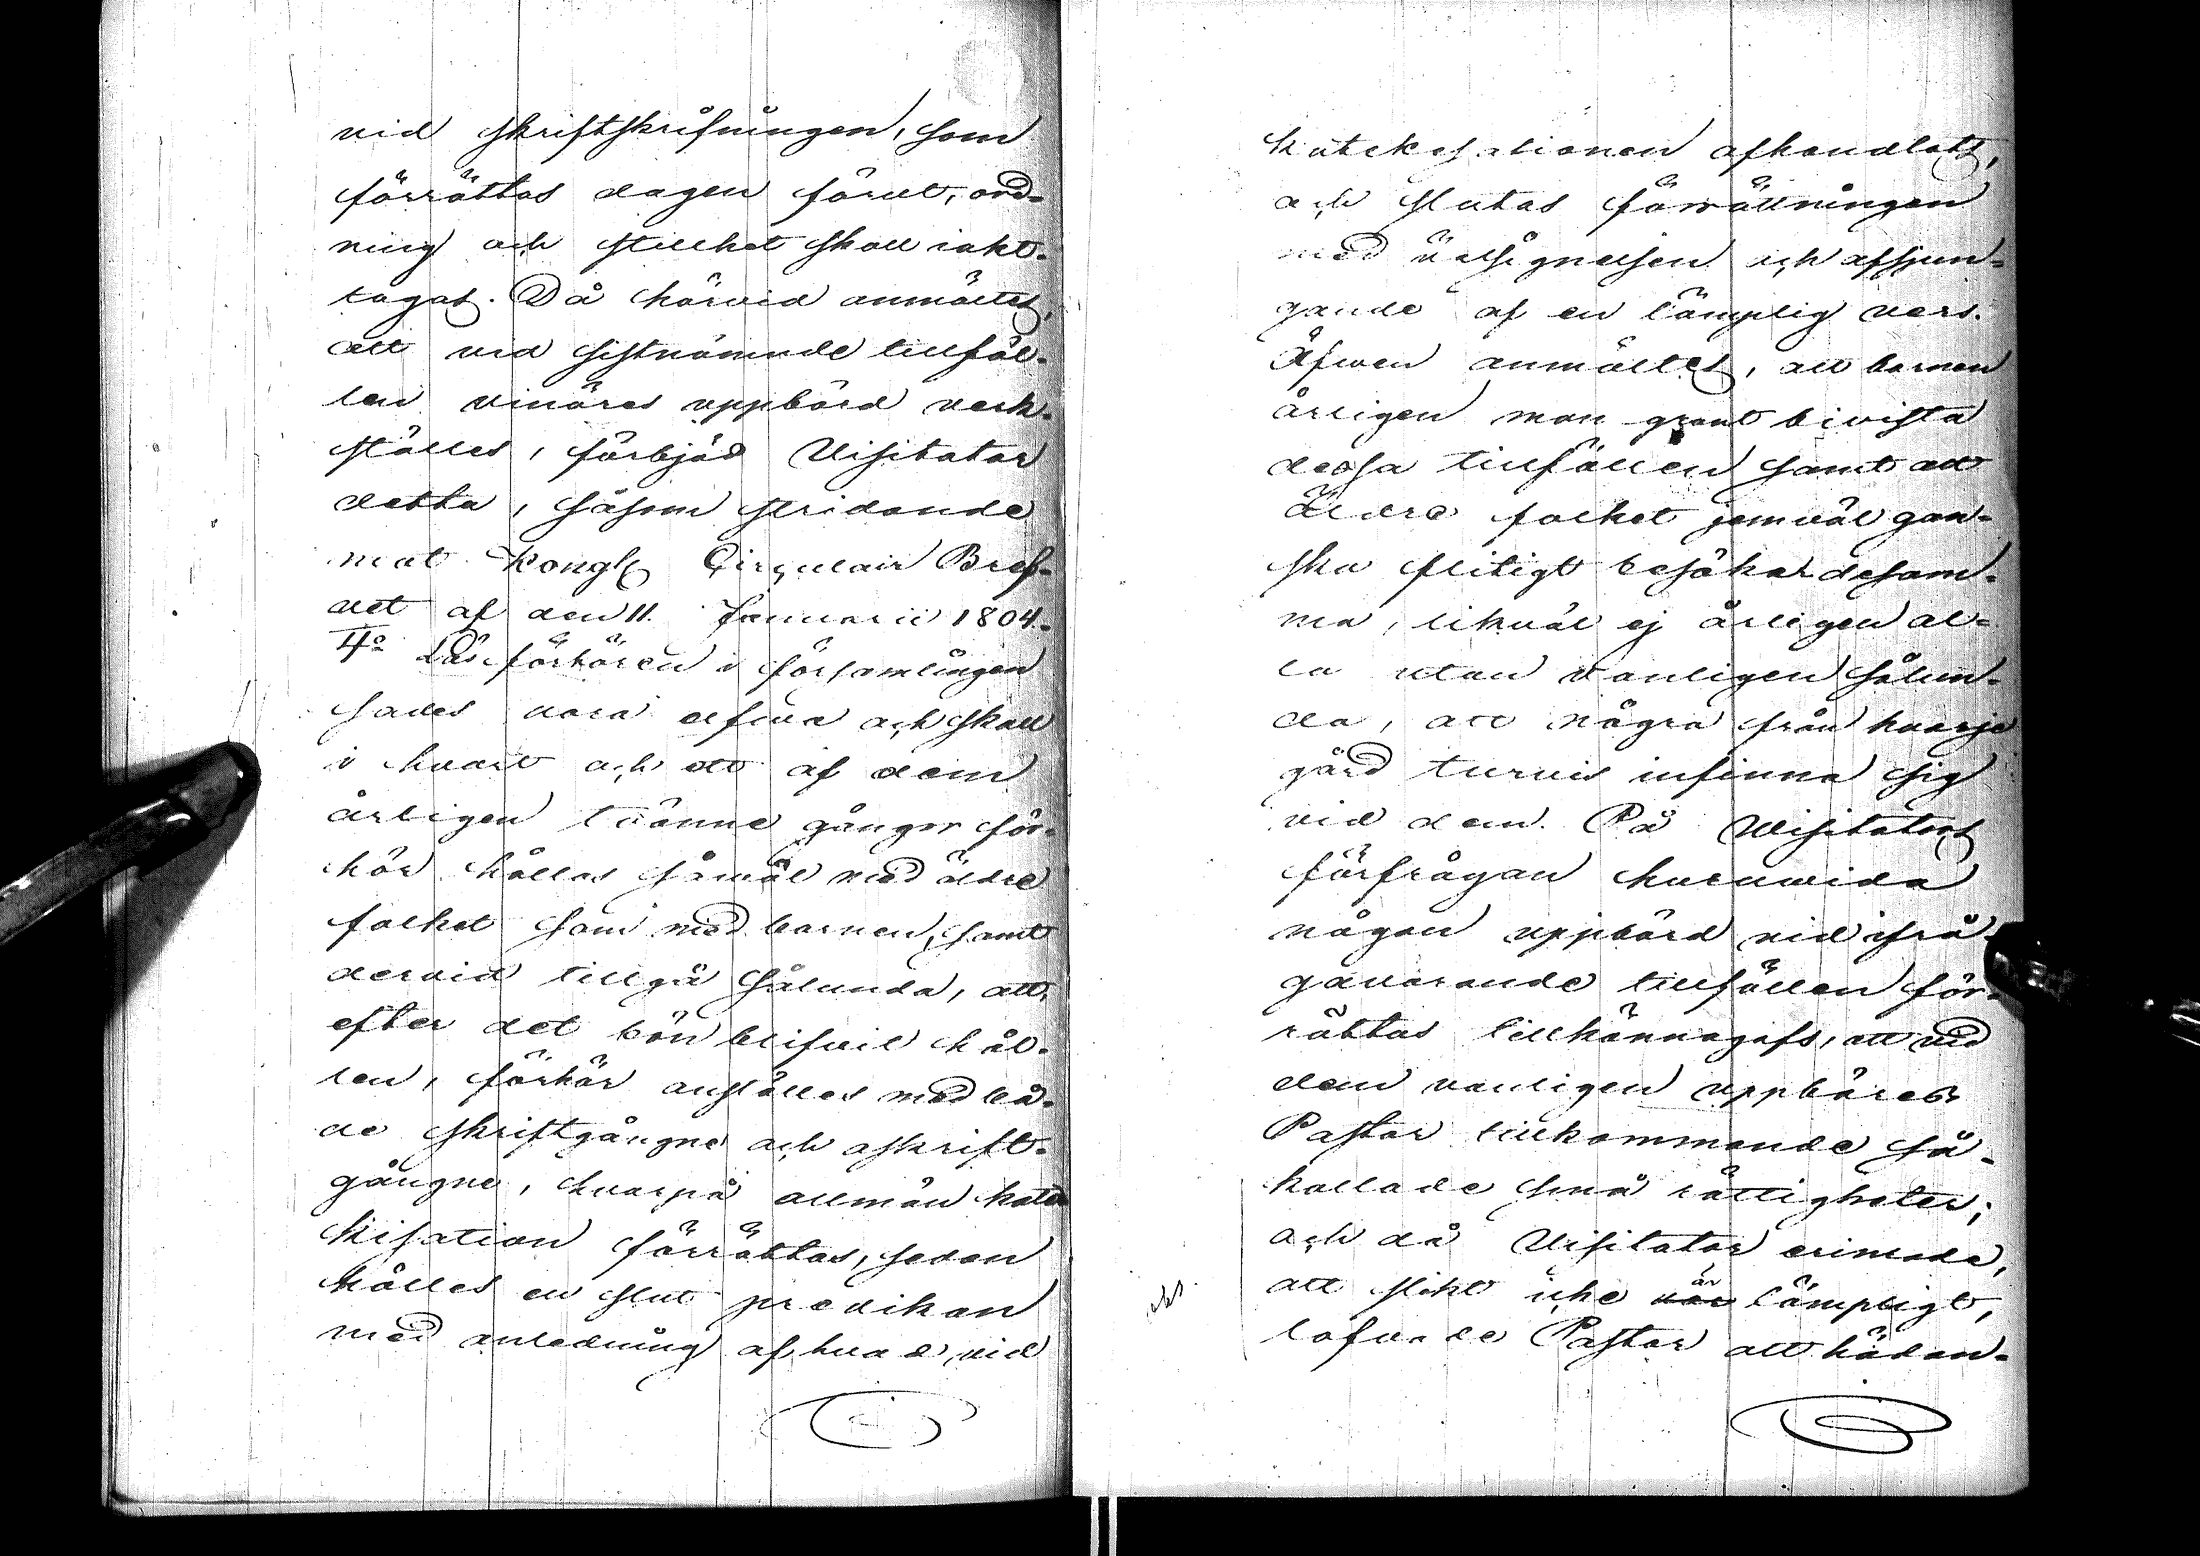 vid skriftskrifningen, som
förrättas dagen förut, ord-
ning och stillhet skall iakt-
tagas. Då härvid anmältes,
att vid sistnämnde tillfäl-
len vinöres uppbörd verk-
ställes, förbjöd Visitator
detta, såsom stridande
mot Kongl. Circulair Bref-
vet af den 11. Januarii 1804.
4o Läsförhören i församlingen
sades vara elfva och skall
i hvart och ett af dem
årligen tvänne gånger för-
hör hållas såväl med äldre
folket som med barnen, samt
dervid tillgå sålunda, att,
efter det bön blifvit hål-
len, förhör anställes med bå-
de skriftgångne och oskrift-
gångne, hvarpå allmän kate-
kisation förrättas, sedan
hålles en slut predikan
med anledning af hvad, vid
katekesationen afhandlats,
och slutas förrättningen
med välsignelsen och afsjun-
gande af en lämplig vers.
Äfwen anmältes, att barnen
årligen man grant bivista
dessa tillfällen samt att
äldre folket jemväl gan-
ska flitigt besöka desam-
ma, likväl ej årligen al-
la utan vanligen sålun-
da, att några från hvarje
gård turvis infinna sig
vid dem. På Visitators
förfrågan huruwida
någon uppbörd vid ifrå-
gavarande tillfällen för-
rättas tillkännagafs, att vid
dem vanligen uppbäres
Pastor tillkommande så-
kallade små rättigheter;
och då Visitator erinrade,
att slikt icke var är lämpligt,
lofvade Pastor att hädan-